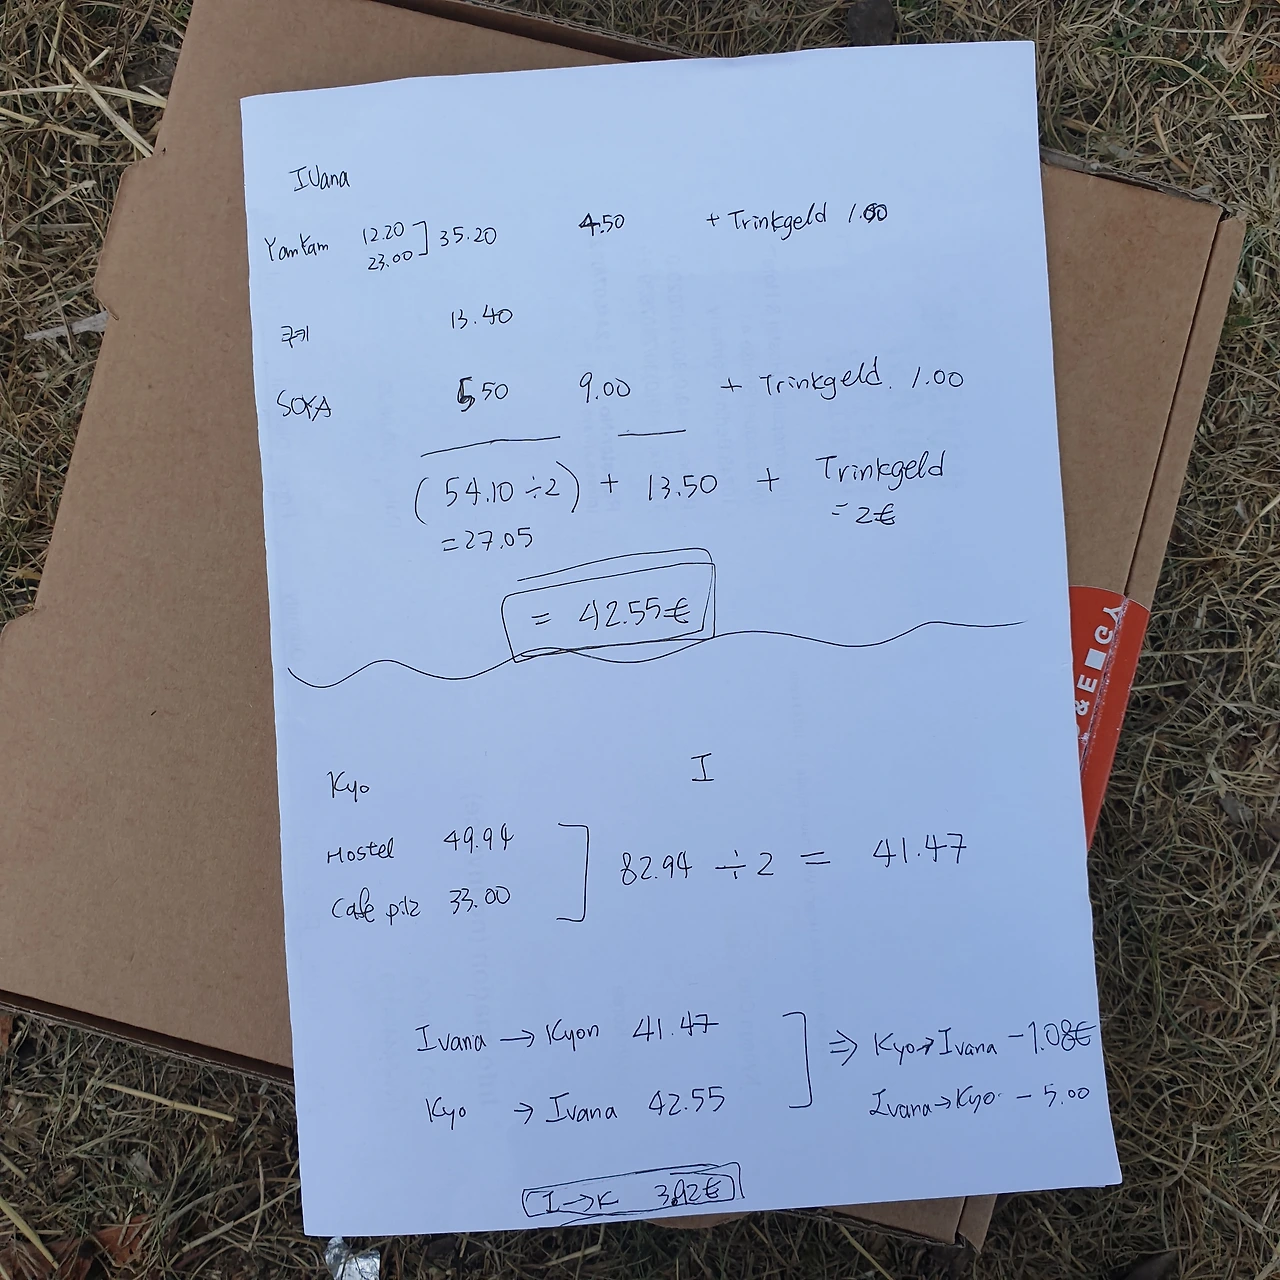 IVana
Yamyam 12.20 ] 35.20 4.50 + Trinkgeld 1.00
23.00
쿠키 13.40
SOYA 5.50 9.00 + Trinkgeld. 1.00
(54.10 ÷2) + 13.50 + Trinkgeld
=27.05 =2€
= 42.55€
Kyo I
Hostel 49.94
82.94 ÷ 2 = 41.47
Cafe pilz 33.00
Ivana → Kyon 41.47 ⇒ Kyo→Ivana -1.08€
Kyo → Ivana 42.55 Ivana→Kyo - 5.00
I→K 3.92€
&E GY